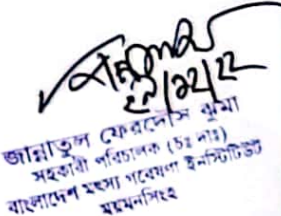 ২৭/১২/২২
জান্নাতুল ফেরদৌস ঝুমা
সহকারী পরিচালক (চঃ দাঃ)
বাংলাদেশ মৎস্য গবেষণা ইনস্টিটিউট
ময়মনসিংহ